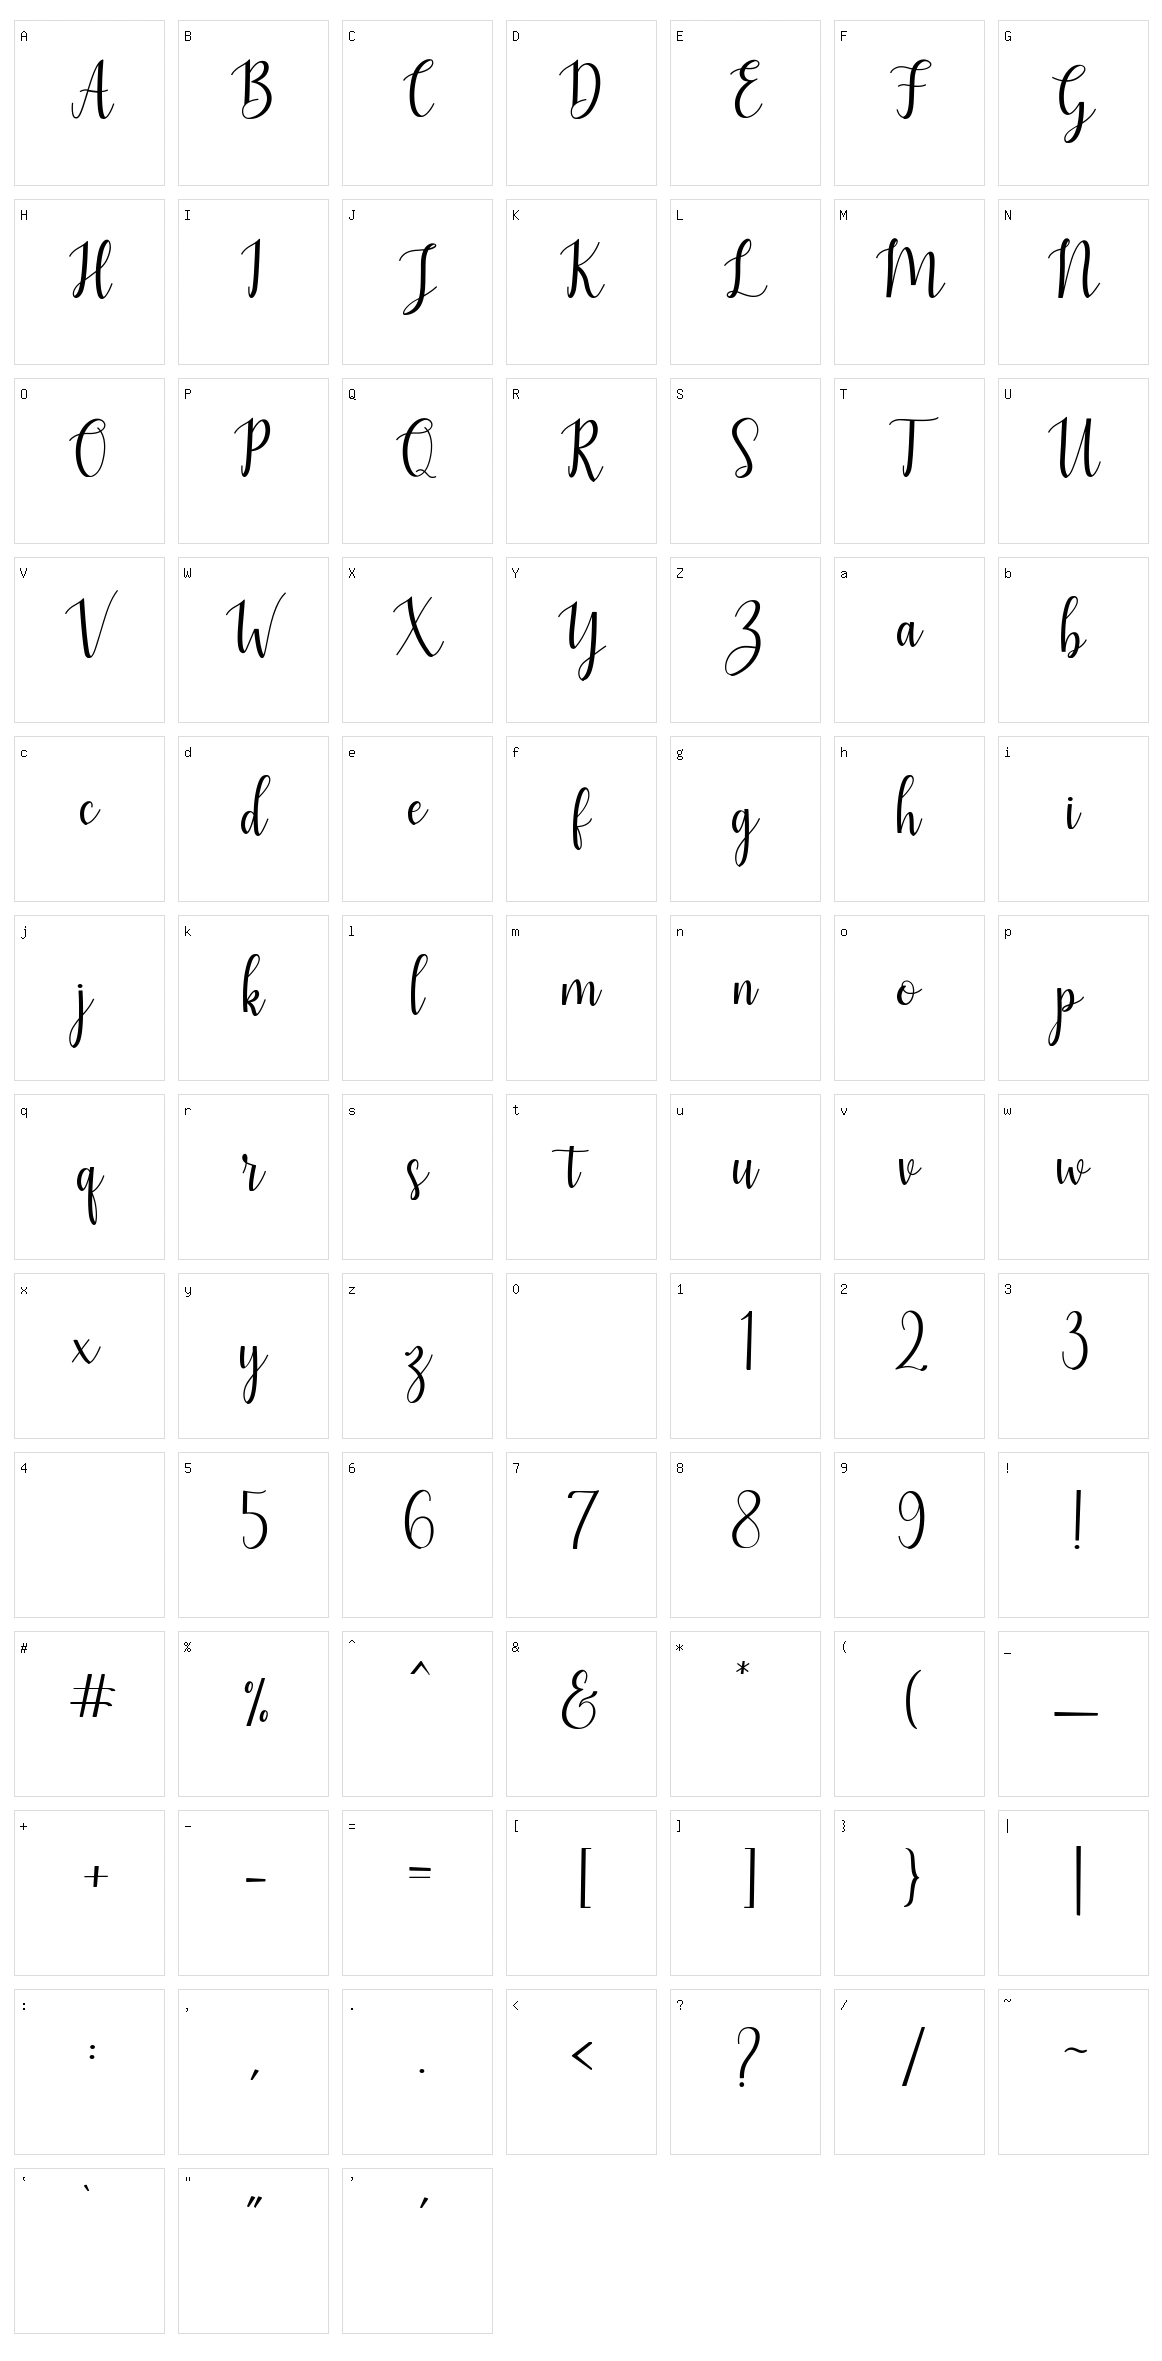 A B C D E F G
A B C D E F G
H I J K L M N
H I J K L M N
O P Q R S T U
O P Q R S T U
V W X Y Z a b
V W X Y Z a b
c d e f g h i
c d e f g h i
j k l m n o p
j k l m n o p
q r s t u v w
q r s t u v w
x y z 0 1 2 3
x y z 1 2 3
4 5 6 7 8 9 !
5 6 7 8 9 !
# % ^ & * ( _
# % ^ & * ( _
+ - = [ ] } |
+ - = [ ] } |
: , . < ? / ~
: , . < ? / ~
‘ " ’
` " ’